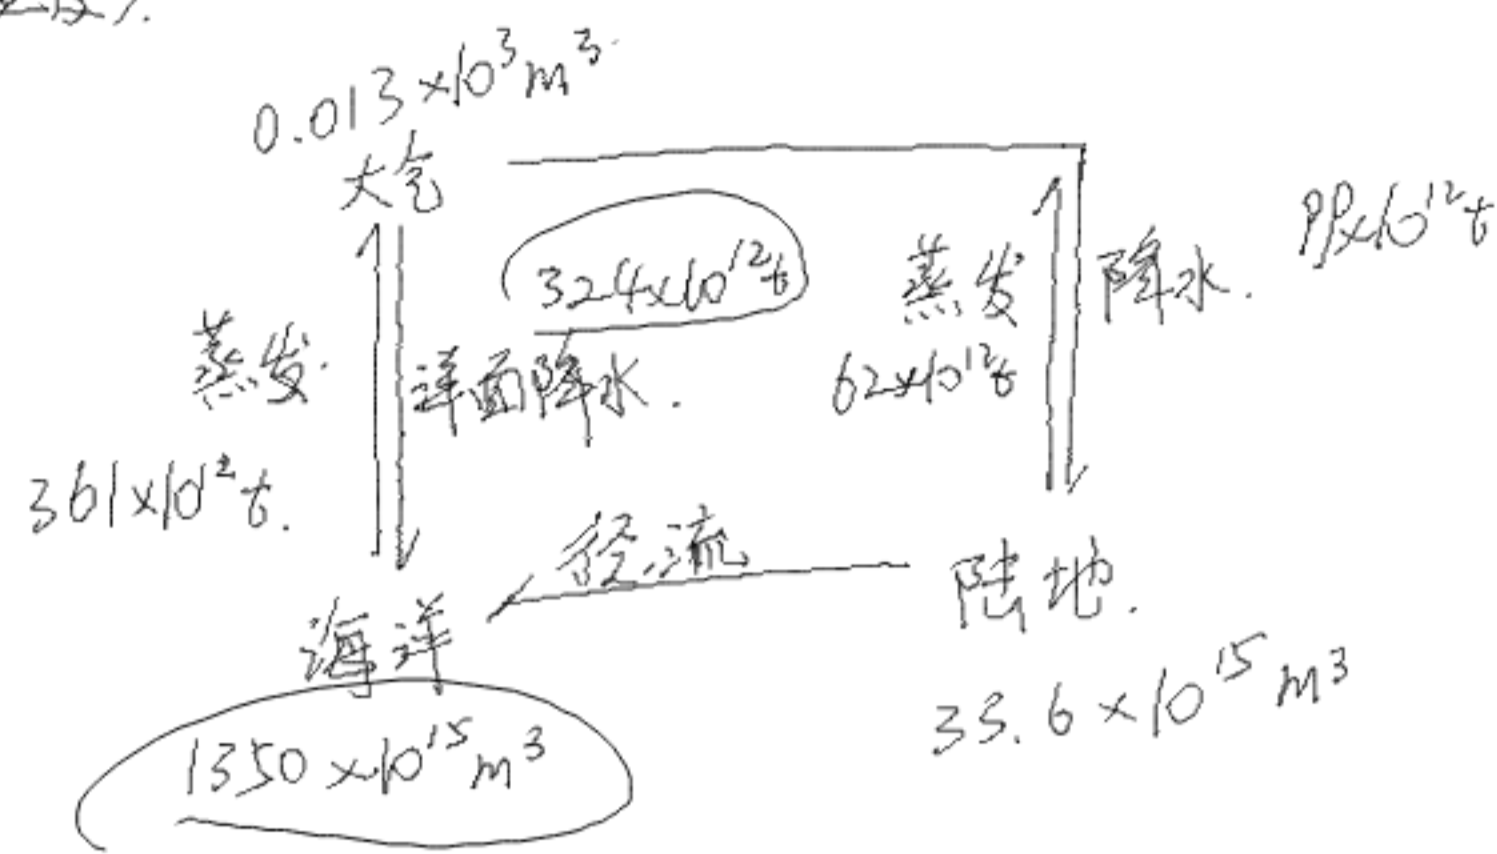 0.013×10³m³
大气
324×10¹²t
蒸发
降水.
99×10¹²t
蒸发
洋面降水.
62×10¹²t
361×10¹²t.
径流
陆地.
海洋
33.6×10¹⁵m³
1350×10¹⁵m³